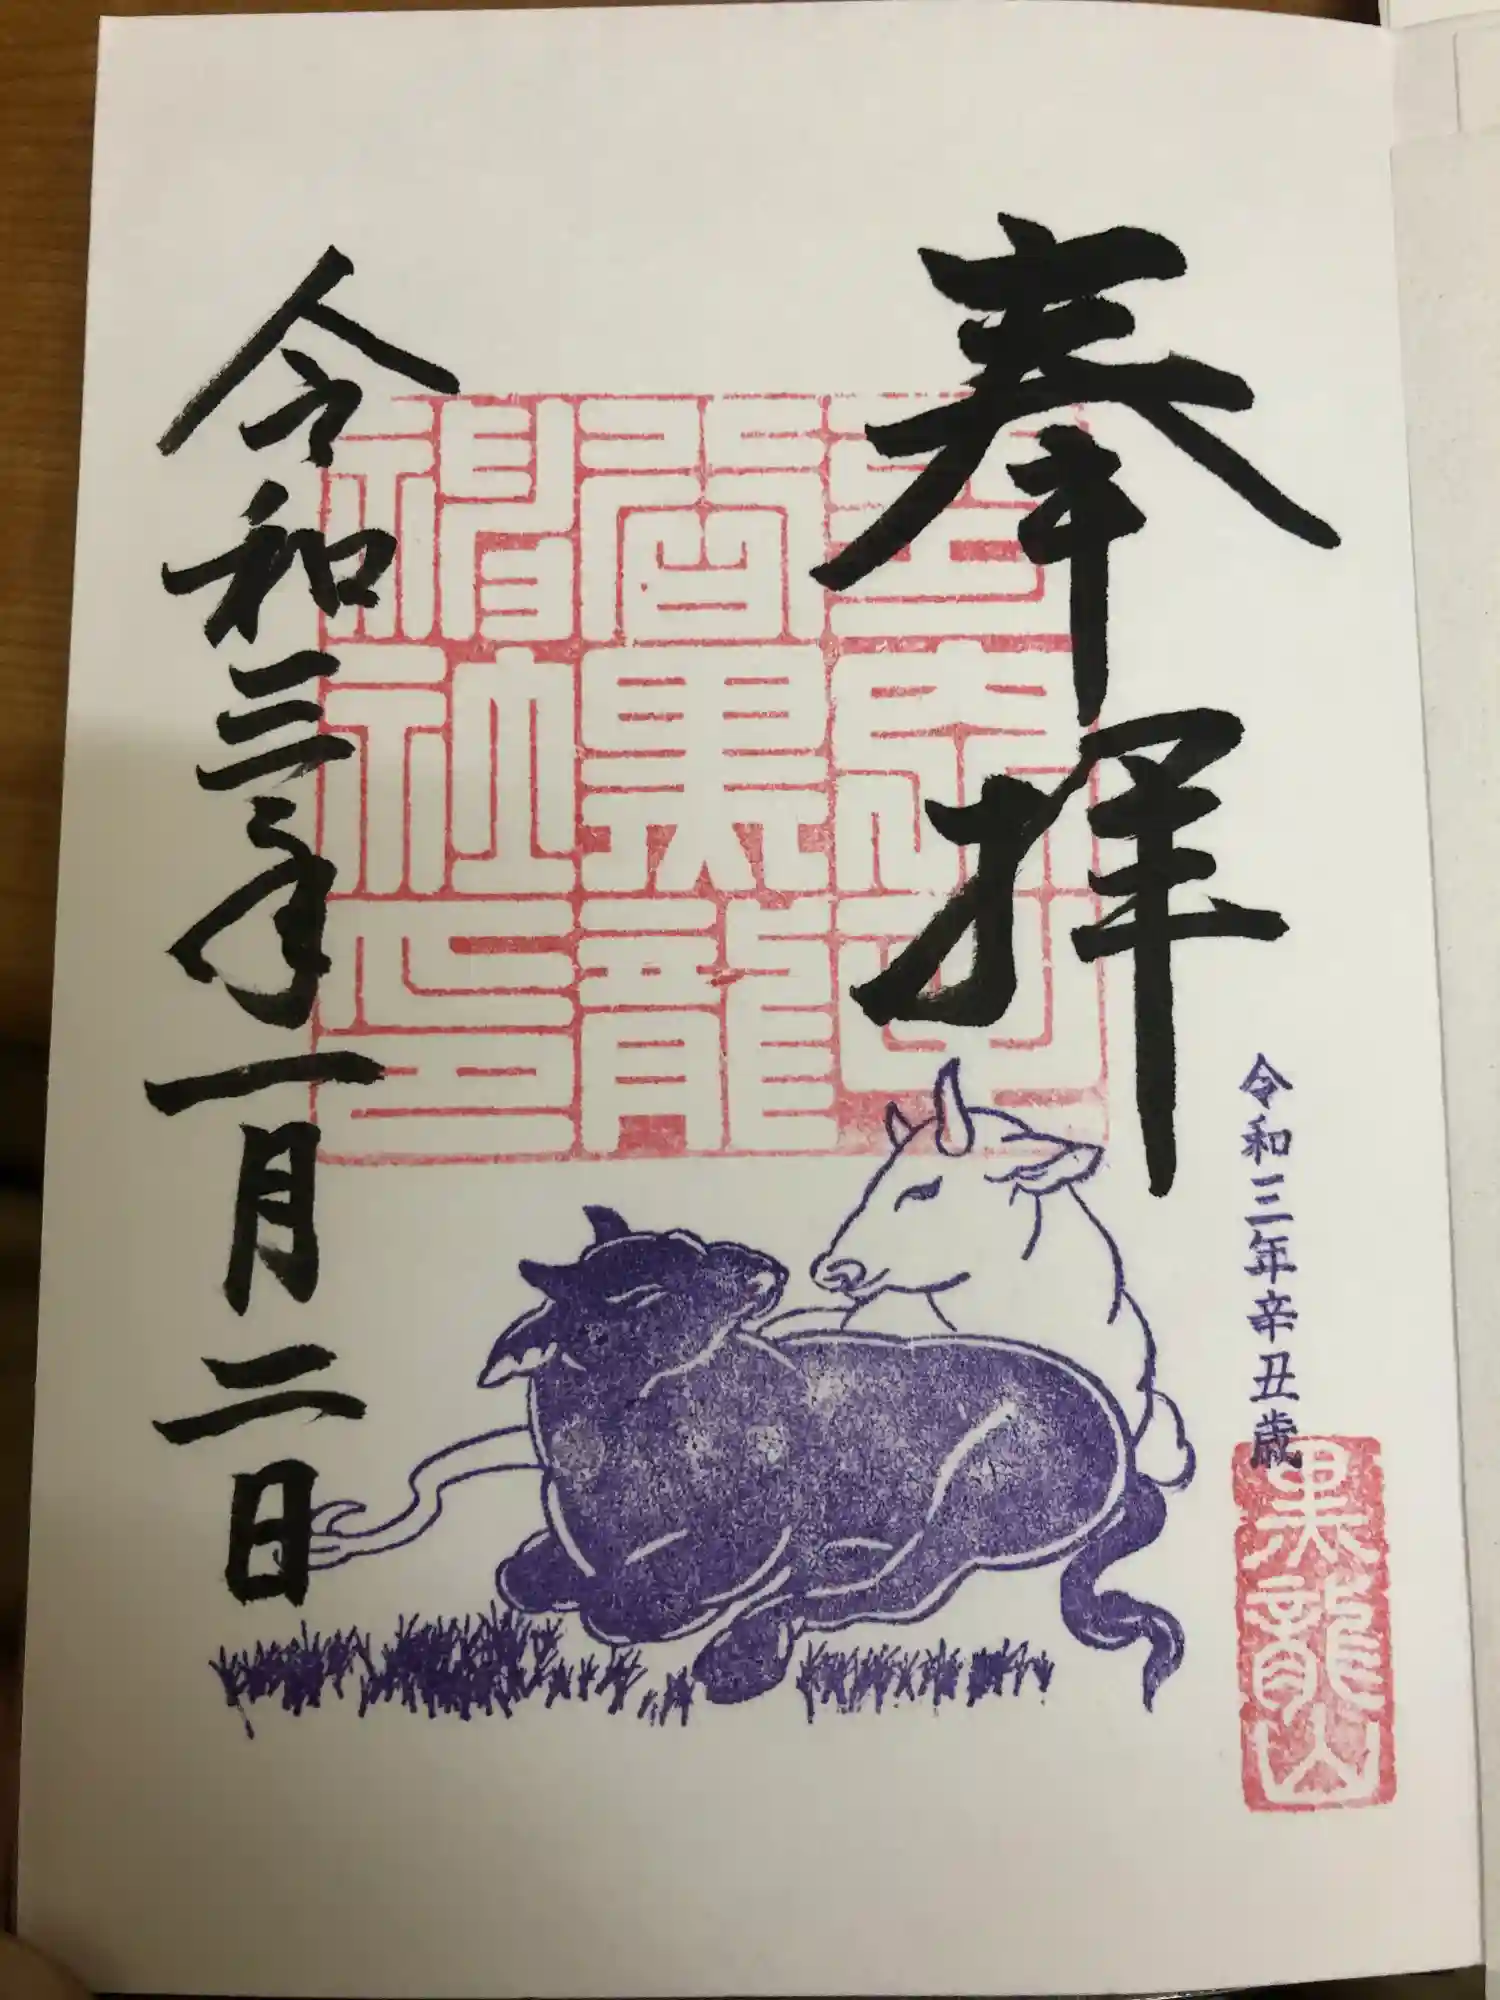 奉拝
令和三年辛丑歳
黒龍山
谷黒龍
神社印
令和三年一月二日